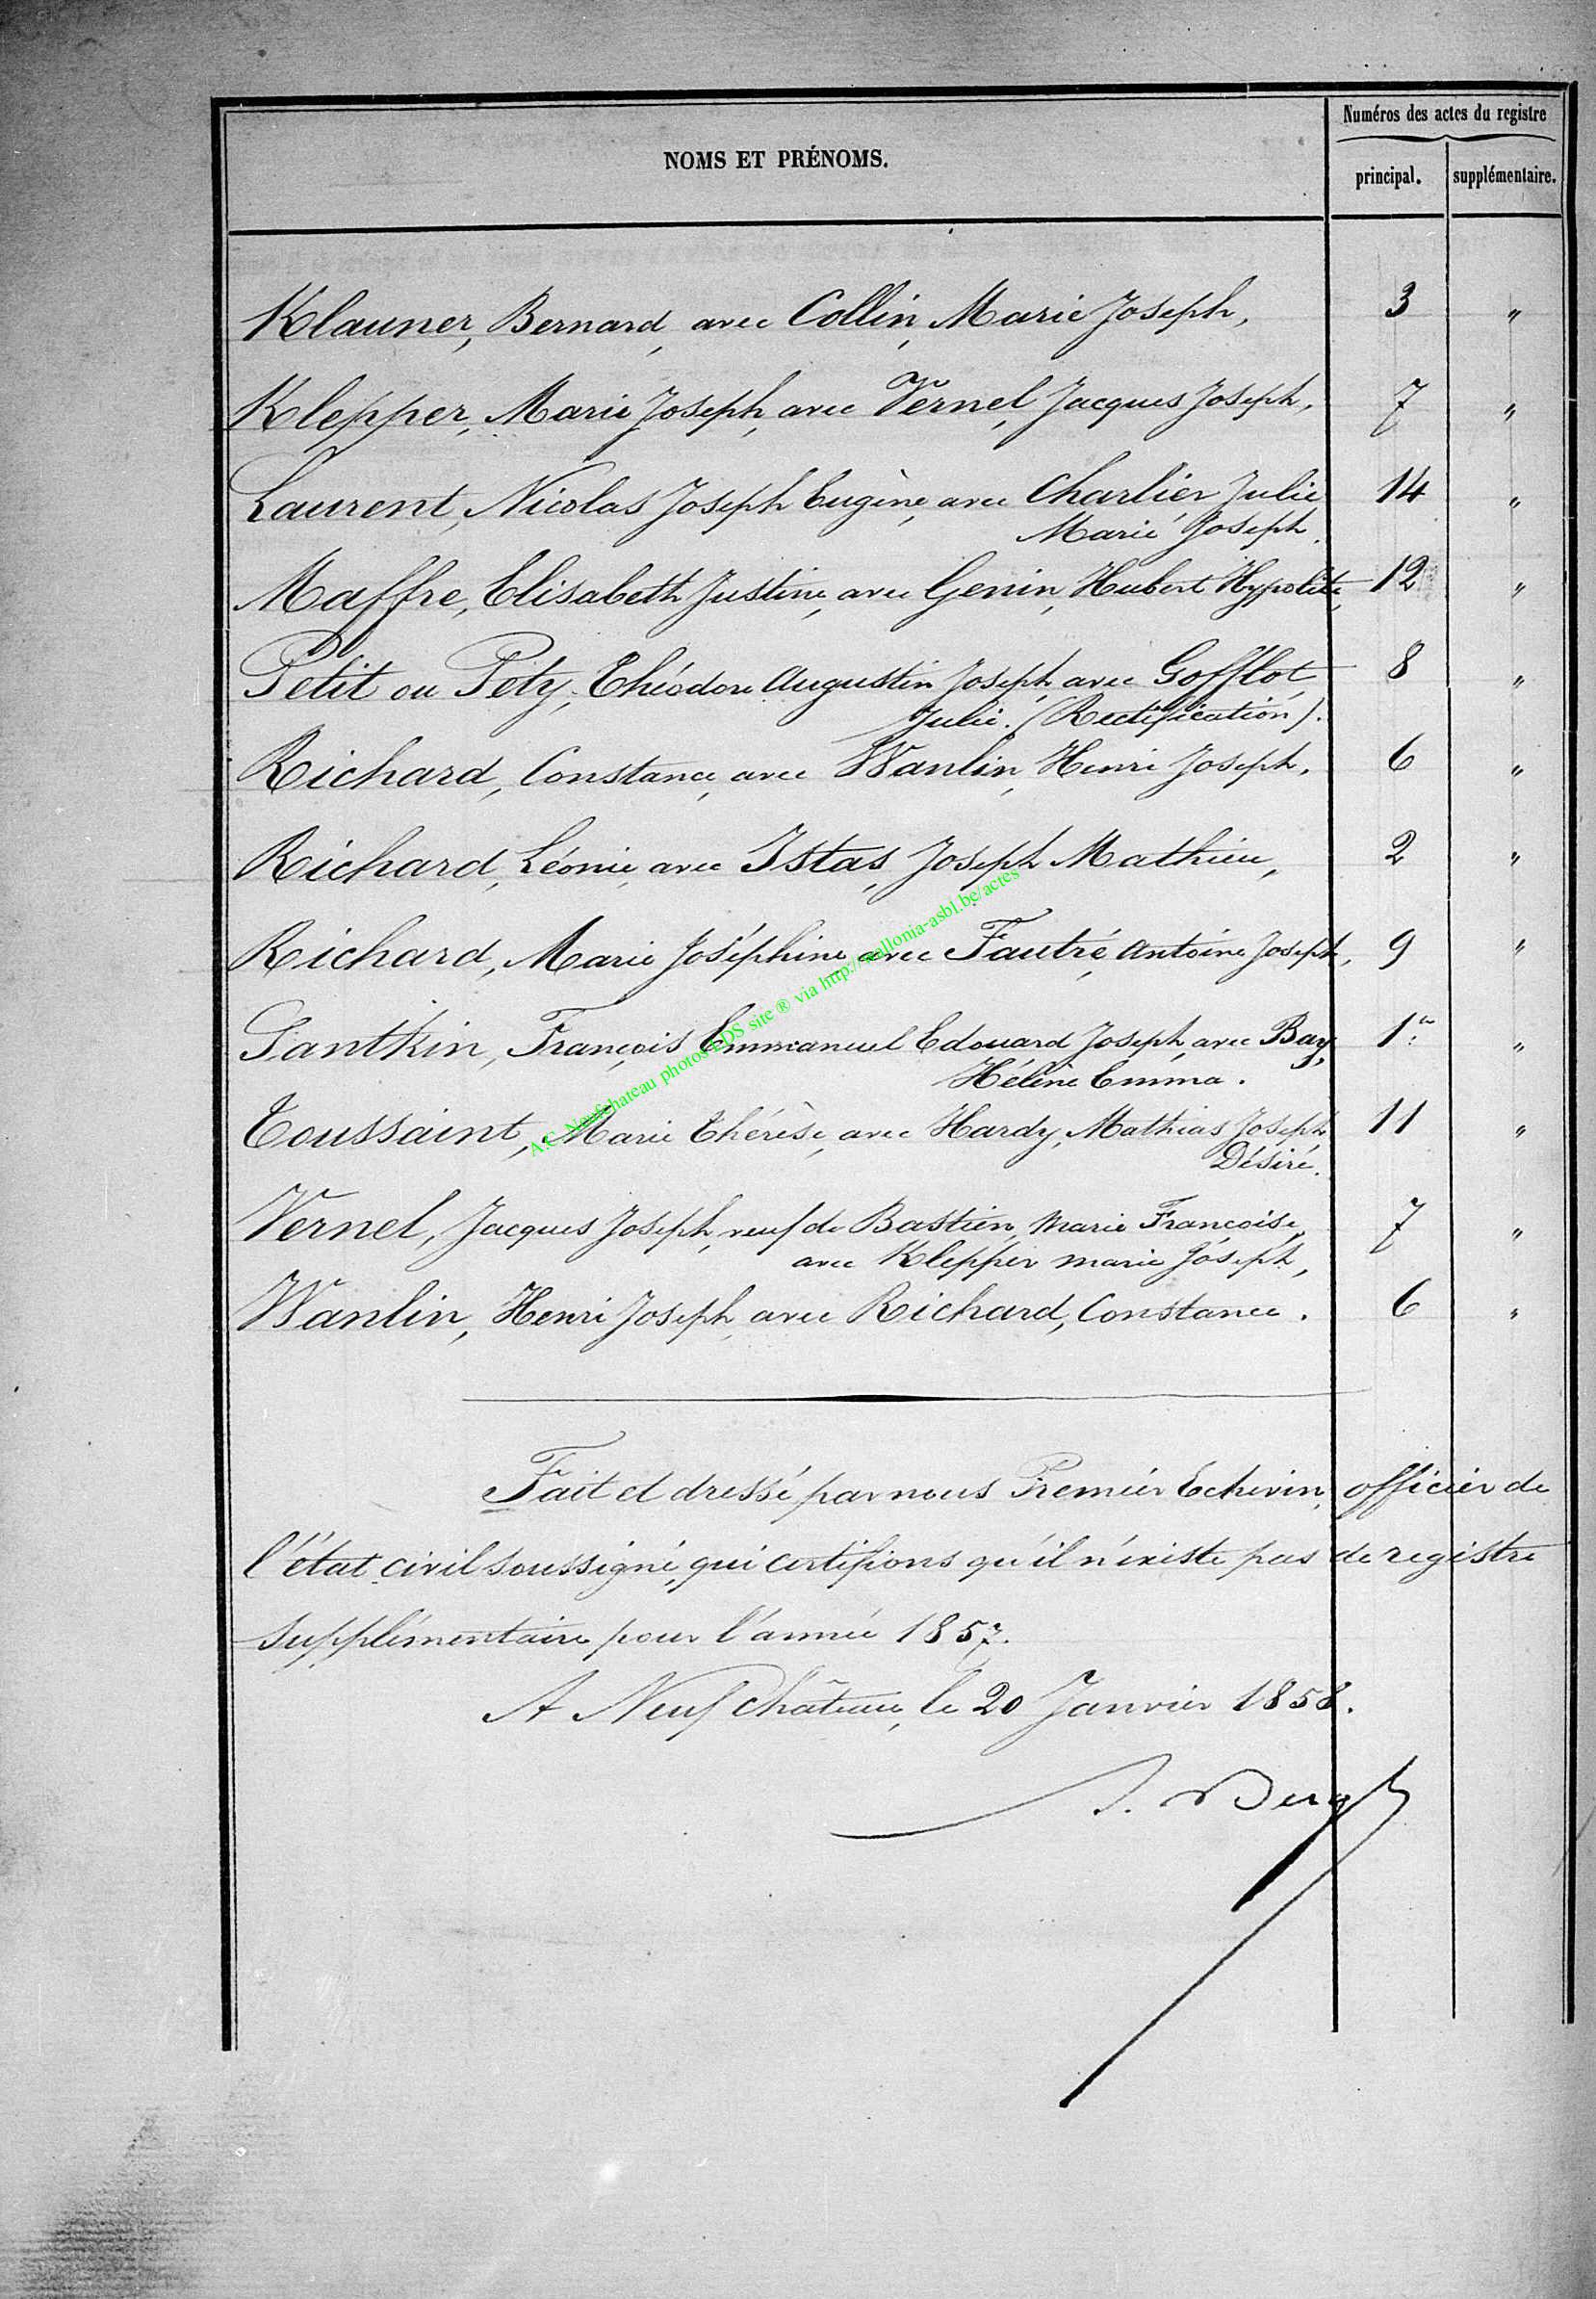 Numéros des actes du registre
NOMS ET PRÉNOMS.
principal. supplémentaire.
Klauner, Bernard, avec Collin, Marie Joseph, 3 "
Klepper, Marie Joseph, avec Vernel, Jacques Joseph, 7 "
Laurent, Nicolas Joseph Eugène, avec Charlier Julie 14 "
Marie Joseph.
Maffre, Elisabeth Justine, avec Genin, Hubert Hypolite, 12 "
Petit ou Pety, Théodore Augustin Joseph, avec Gofflot, 8 "
Julie. (Rectification).
Richard, Constance, avec Wanlin, Henri Joseph, 6 "
Richard, Léonie, avec Istas, Joseph Mathieu, 2 "
Richard, Marie Joséphine avec Fautré, Antoine Joseph, 9 "
Santkin, François Emmanuel Edouard Joseph, avec Bay, 1er "
Hélène Emma.
Toussaint, Marie Thérèse, avec Hardy, Mathias Joseph 11 "
Désiré.
Vernel, Jacques Joseph, veuf de Bastien, Marie Françoise, 7 "
avec Klepper marie Joseph,
Wanlin, Henri Joseph, avec Richard, Constance. 6 "
Fait et dressé par nous Premier Echevin, officier de
l'état civil soussigné, qui certifions qu'il n'existe pas de registre
supplémentaire pour l'année 1857.
A Neufchâteau, le 20 Janvier 1858.
A.C. Neufchateau photos EDS site ® via http://wallonia-asbl.be/actes